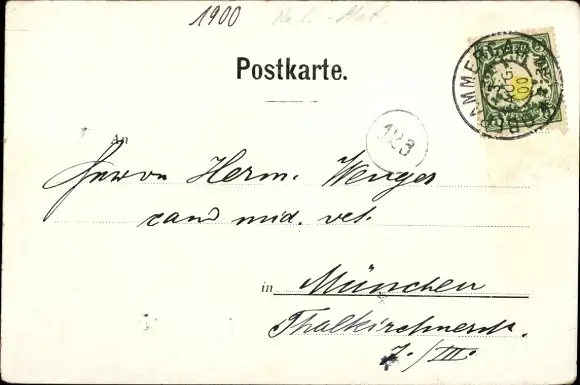 1900
Postkarte.
An
Herrn Herm. Wenges
cand med. vet.
in München
Thalkirchnerstr.
7./III.
123
OBERAMMERGAU
AUG.
00